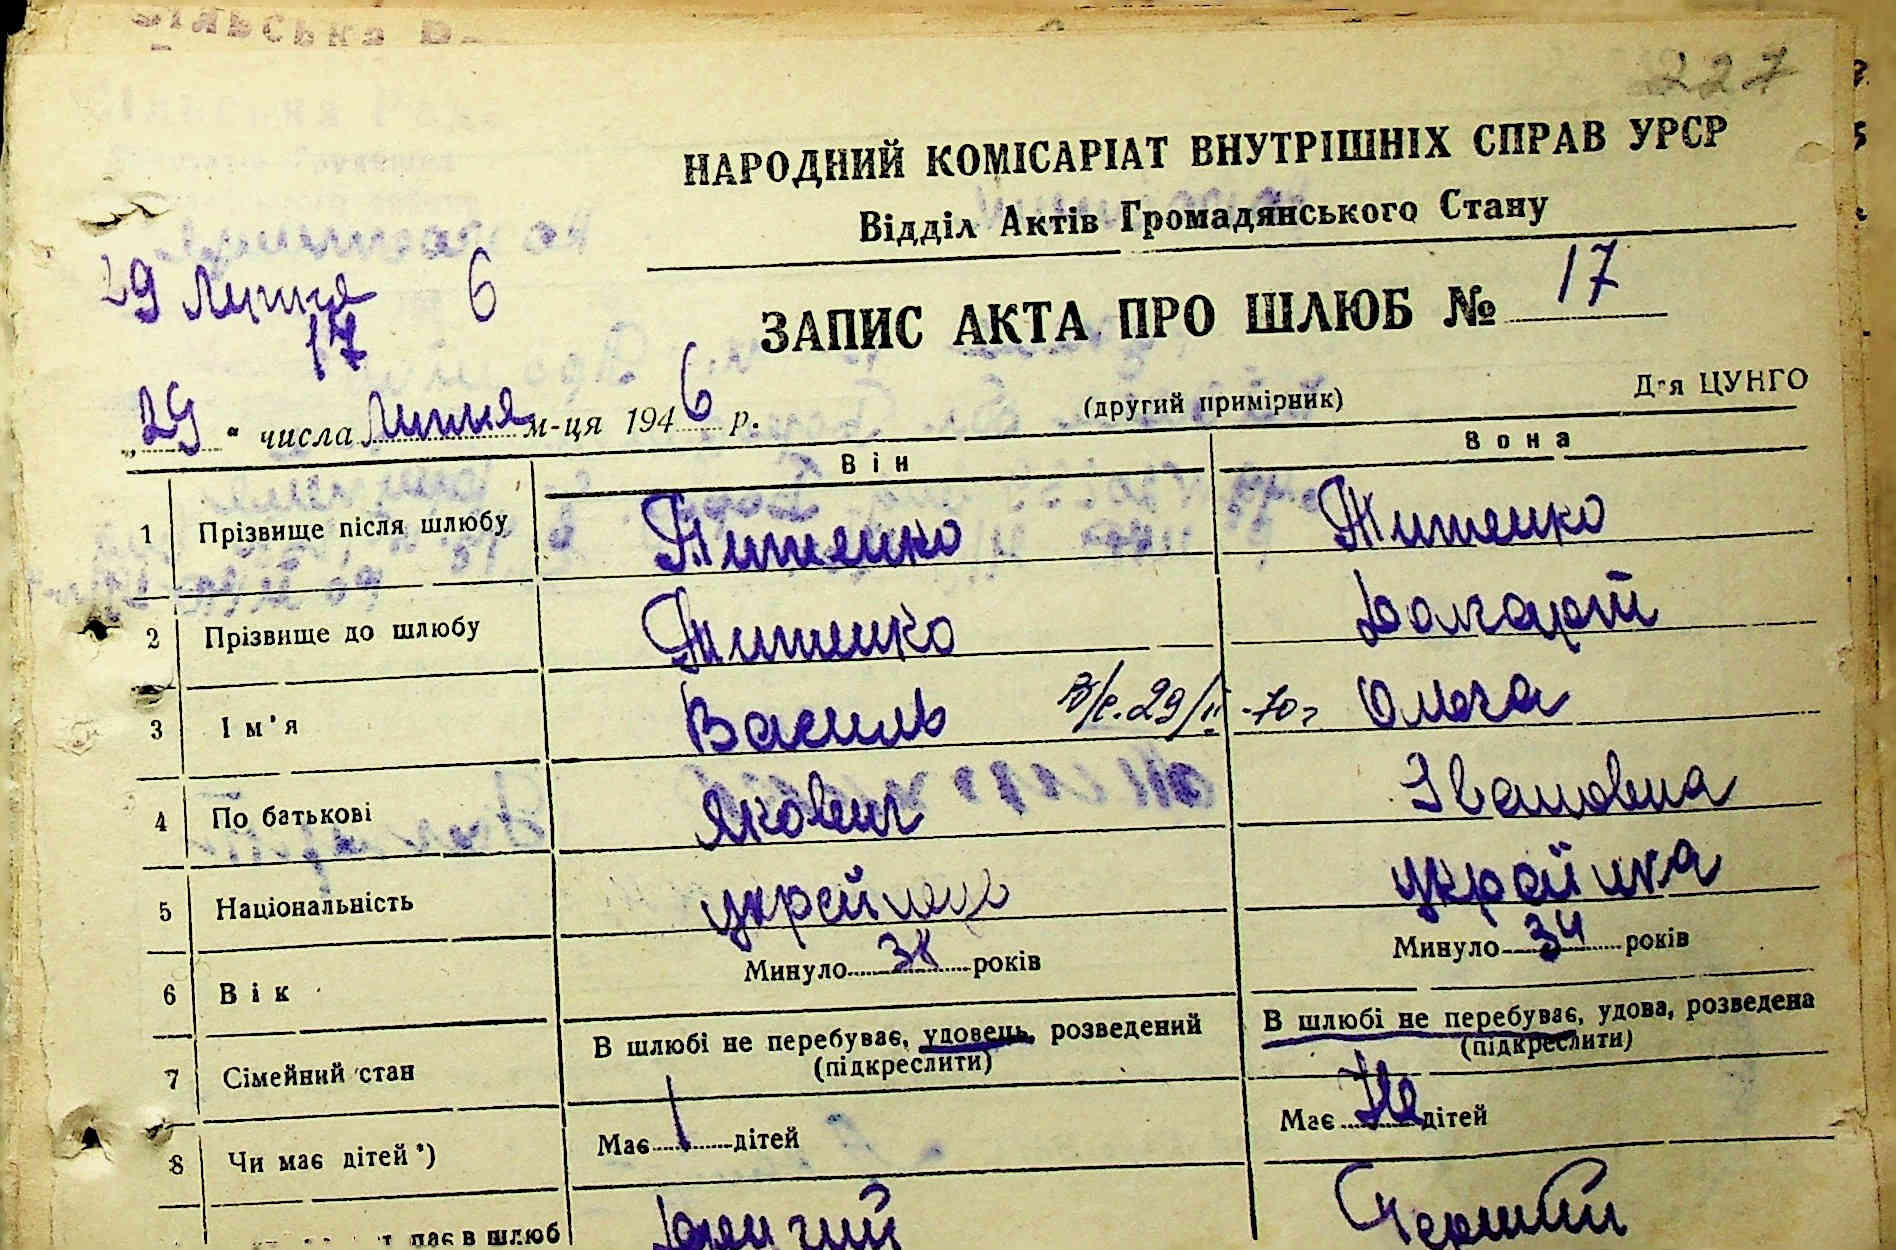 227
НАРОДНИЙ КОМІСАРІАТ ВНУТРІШНІХ СПРАВ УРСР
Відділ Актів Громадянського Стану
29 Липня 6
17
ЗАПИС АКТА ПРО ШЛЮБ № 17
„29" числа Липня м-ця 1946 р.
(другий примірник) Для ЦУНГО
Він Вона
1 Прізвище після шлюбу Титенко Титенко
2 Прізвище до шлюбу Титенко Долгарт
3 Ім'я Василь В/с. 29/II-70г Ольга
4 По батькові Якович Івановна
5 Національність українець українка
6 Вік Минуло 38 років Минуло 34 років
7 Сімейний стан В шлюбі не перебуває, удовець, розведений (підкреслити) В шлюбі не перебуває, удова, розведена (підкреслити)
8 Чи має дітей*) Має 1 дітей Має Не дітей
в шлюб Другий Перший